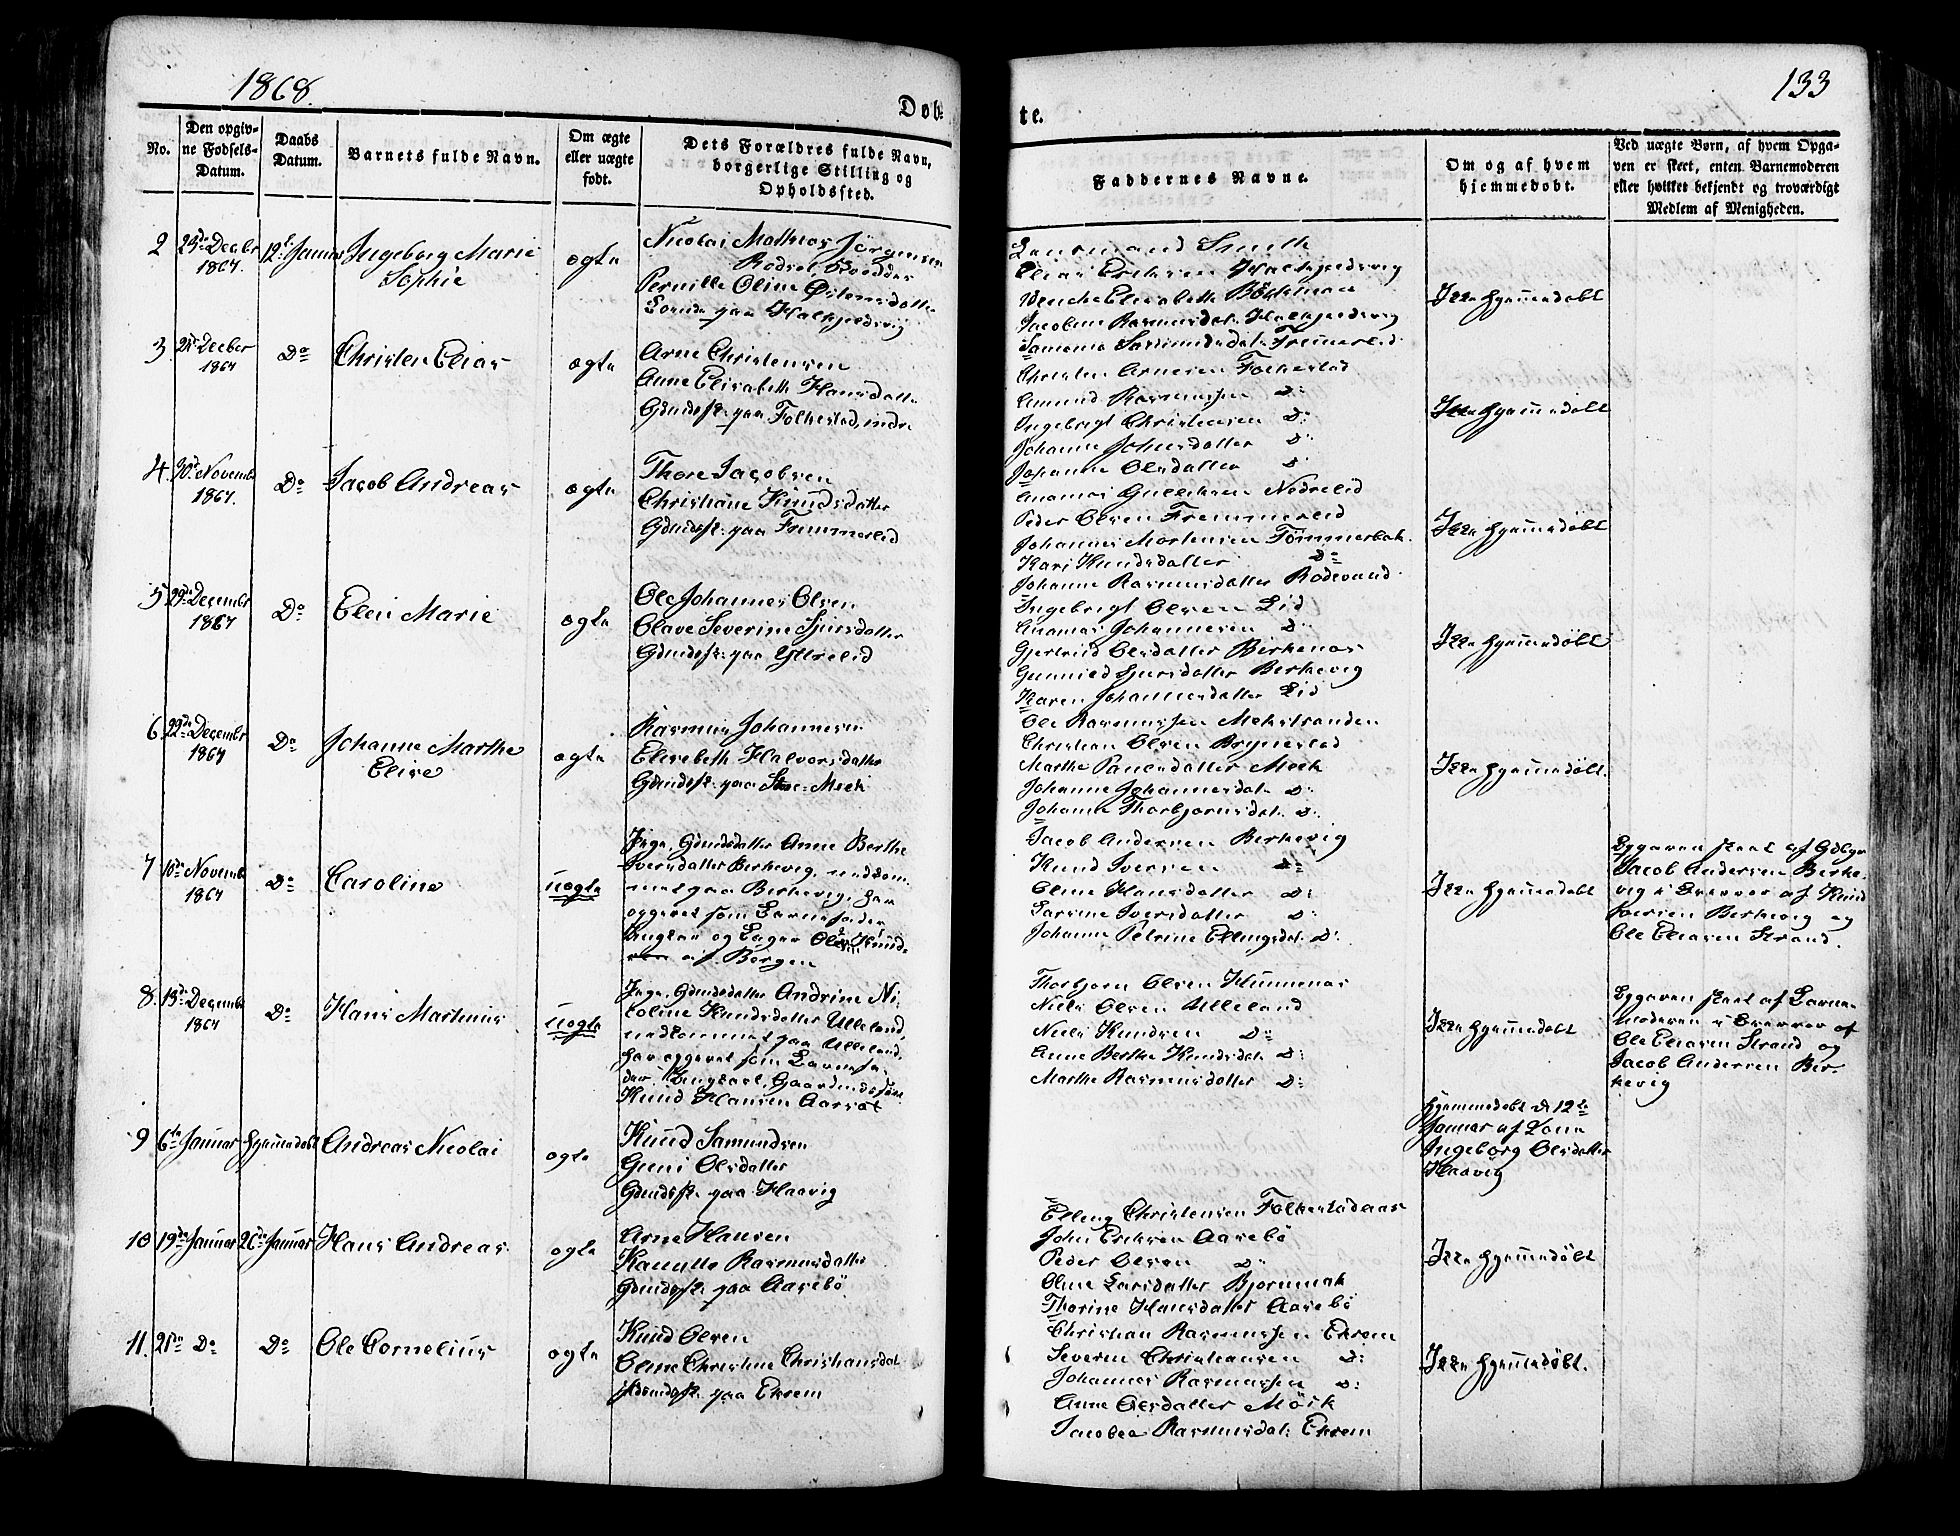 1868.
133
Døb-
te.
No.
Den opgiv-
ne Fødsels-
Datum.
Daabs
Datum.
Barnets fulde Navn.
Om ægte
eller uægte
født.
Dets Forældres fulde Navn,
borgerlige Stilling og
Opholdssted.
Faddernes Navne.
Om og af hvem
hjemmedøbt.
Ved uægte Børn, af hvem Opga-
ven er skeet, enten Barnemoderen
eller hvilket bekjendt og troværdigt
Medlem af Menigheden.
2
23de Decbr
1867.
12te Januar
Ingeborg Marie
Sophie
ægte
Nicolai Mathias Jörgensen
Pernille Oline Østensdatter
paa Halkjelsvig
Lensmand Smith
Elias Eriksen Halkjelsvig
Wenche Elisabeth
Jacobine Rasmusdat. Halkjelsvig
Fremmerlid
Ikke hjemmedøbt
3
Decber
1867
Do
Christen Elias
ægte
Arne Christensen
Anne Elisabeth Hansdatter
Gdmdsk. paa Folkestad, indre
Christen Arnesen Folkestad
Amund Rasmussen Do
Ingebrigt Christensen Do
Johanne Johnsdatter Do
Johanne Olsdatter Do
Ikke hjemmedøbt
4.
30te Novembr
1867.
Do
Jacob Andreas
ægte
Thore Jacobsen
Christiane Knudsdatter
Gdmdsk. paa Fremmerlid
Nedrelid
Peder Olsen Fremmerlid
Johannes Mortensen Tømmerbak.
Kari Knudsdatter Do
Johanne Rasmusdatter Rødevand
Ikke hjemmedøbt
5
29de Decembr
1867
Do
Elen Marie
ægte
Ole Johannes Olsen
Olave Severine Sjursdatter
Gdmdsk. paa Ytrelid
Ingebrigt Olsen Lid
Johannesen Do
Gjertrud Olsdatter Birkenes
Gunnild Sjursdatter Berkevig
Karen Johannesdatter Lid
Ikke hjemmedøbt
6
22de Decembr
1867
Do
Johanne Marthe
Elise
ægte
Rasmus Johannesen
Elisabeth Halvorsdatter
Gdmdsk. paa Store-Mek
Ole Rasmussen Mekstranden
Christian Olsen Brynestad
Marthe Paulsdatter Mek
Johanne Johannesdat. Do
Johanne Thorbjørnsdat. Do
Ikke hjemmedøbt.
7
10de Novembr
1867
Do
Caroline
uægte
Pige, Gdmdsdatter Anne Berthe
Iversdatter Berkevig, nedkom-
met paa Berkevig, har
opgivet som Barnefader
Ungkar og Bager Ole Knud-
sen af Bergen
Jacob Andersen Berkevig
Knud Iversen Do
Oline Hansdatter Do
Sarrine Iversdatter Do
Johanne Petrine Ellingsdat. Do
Ikke hjemmedøbt
Opgaven skeet af Gdbgr
Jacob Andersen Berke-
vig i Nærvær af Knud
Iversen Berkevig og
Ole Eliasen Strand.
8.
13de Decembr
1867
Do
Hans Martinus
uægte
Pige, Gdmdsdatter Andrine Ni-
coline Knudsdatter Ulleland,
nedkommet paa Ulleland,
har opgivet som Barnefa-
der Ungkarl, Gaardmdssøn
Knud Hansen Aarset
Thorbjørn Olsen Hunnenes
Niels Olsen Ulleland
Niels Knudsen Do
Anne Berthe Knudsdat. Do
Marthe Rasmusdatter Do
Ikke hjemmedøbt
Opgaven skeet af Barne-
moderen i Nærvær af
Ole Eliasen Strand og
Jacob Andersen Ber-
kevig
9
6te Januar
hjemmedøbt
Andreas Nicolai
ægte
Knud Samundsen
Guni Olsdatter
Gdmdsk. paa Haavig
Hjemmedøbt d 12te
Januar af Kone
Ingeborg Olsdatter
Haavig
10
19de Januar
26de Januar
Hans Andreas
ægte
Arne Hansen
Rasmusdatter
Gdmdsk. paa Aarebö
Elling Christensen Folkestadaas
John Eriksen Aarebö
Peder Olsen Do
Oline Larsdatter Bjørnnak
Thorine Hansdatter Aarebö
Ikke hjemmedøbt
11.
21de Do
Do
Ole Cornelius
ægte
Knud Olsen
Oline Christine Christiansdat
Gdmdsk. paa Eksem
Christian Rasmussen Eksem
Severin Christiansen Do
Johannes Rasmussen Do
Anne Olsdatter Mörk
Jacobea Rasmusdat. Eksem
Ikke hjemmedøbt.